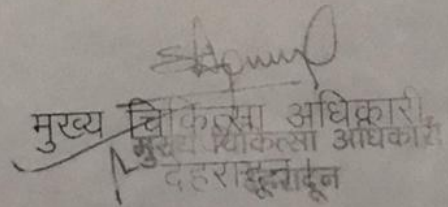 मुख्य चिकित्सा अधिकारी,
मुख्य चिकित्सा अधिकारी
देहरादून